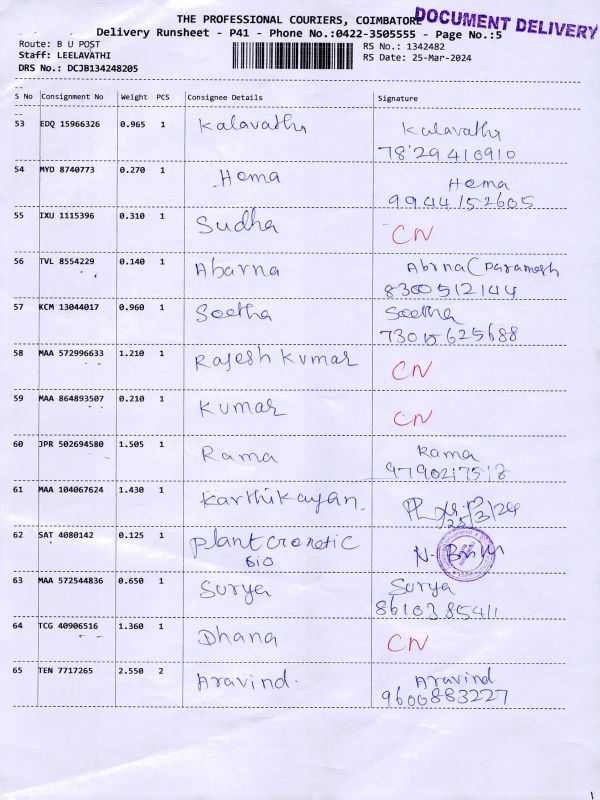 THE PROFESSIONAL COURIERS, COIMBATORE
DOCUMENT DELIVERY
Delivery Runsheet - P41 - Phone No.:0422-3505555 - Page No.:5
Route: B U POST
RS No.: 1342482
Staff: LEELAVATHI
RS Date: 25-Mar-2024
DRS No.: DCJB134248205
S No Consignment No Weight PCS Consignee Details Signature
53 EDQ 15966326 0.965 1 Kalavathi Kalavathi
7829410910
54 MYD 8740773 0.270 1 Hema Hema
9944152605
55 IXU 1115396 0.310 1 Sudha CN
56 TVL 8554229 0.140 1 Abarna Abrna (Paramesh
8300512144
57 KCM 13044017 0.960 1 Seetha Seetha
73015625688
58 MAA 572996633 1.210 1 Rajesh Kumar CN
59 MAA 864893507 0.210 1 Kumar CN
60 JPR 502694580 1.505 1 Rama Rama
61 MAA 104067624 1.430 1 Karthikayan.
25/3/24
62 SAT 4080142 0.125 1 Plant Cronetic
Bio
63 MAA 572544836 0.650 1 Surya Surya
8610385411
64 TCG 40906516 1.360 1 Dhana CN
65 TEN 7717265 2.550 2 Aravind. Aravind
9600883227